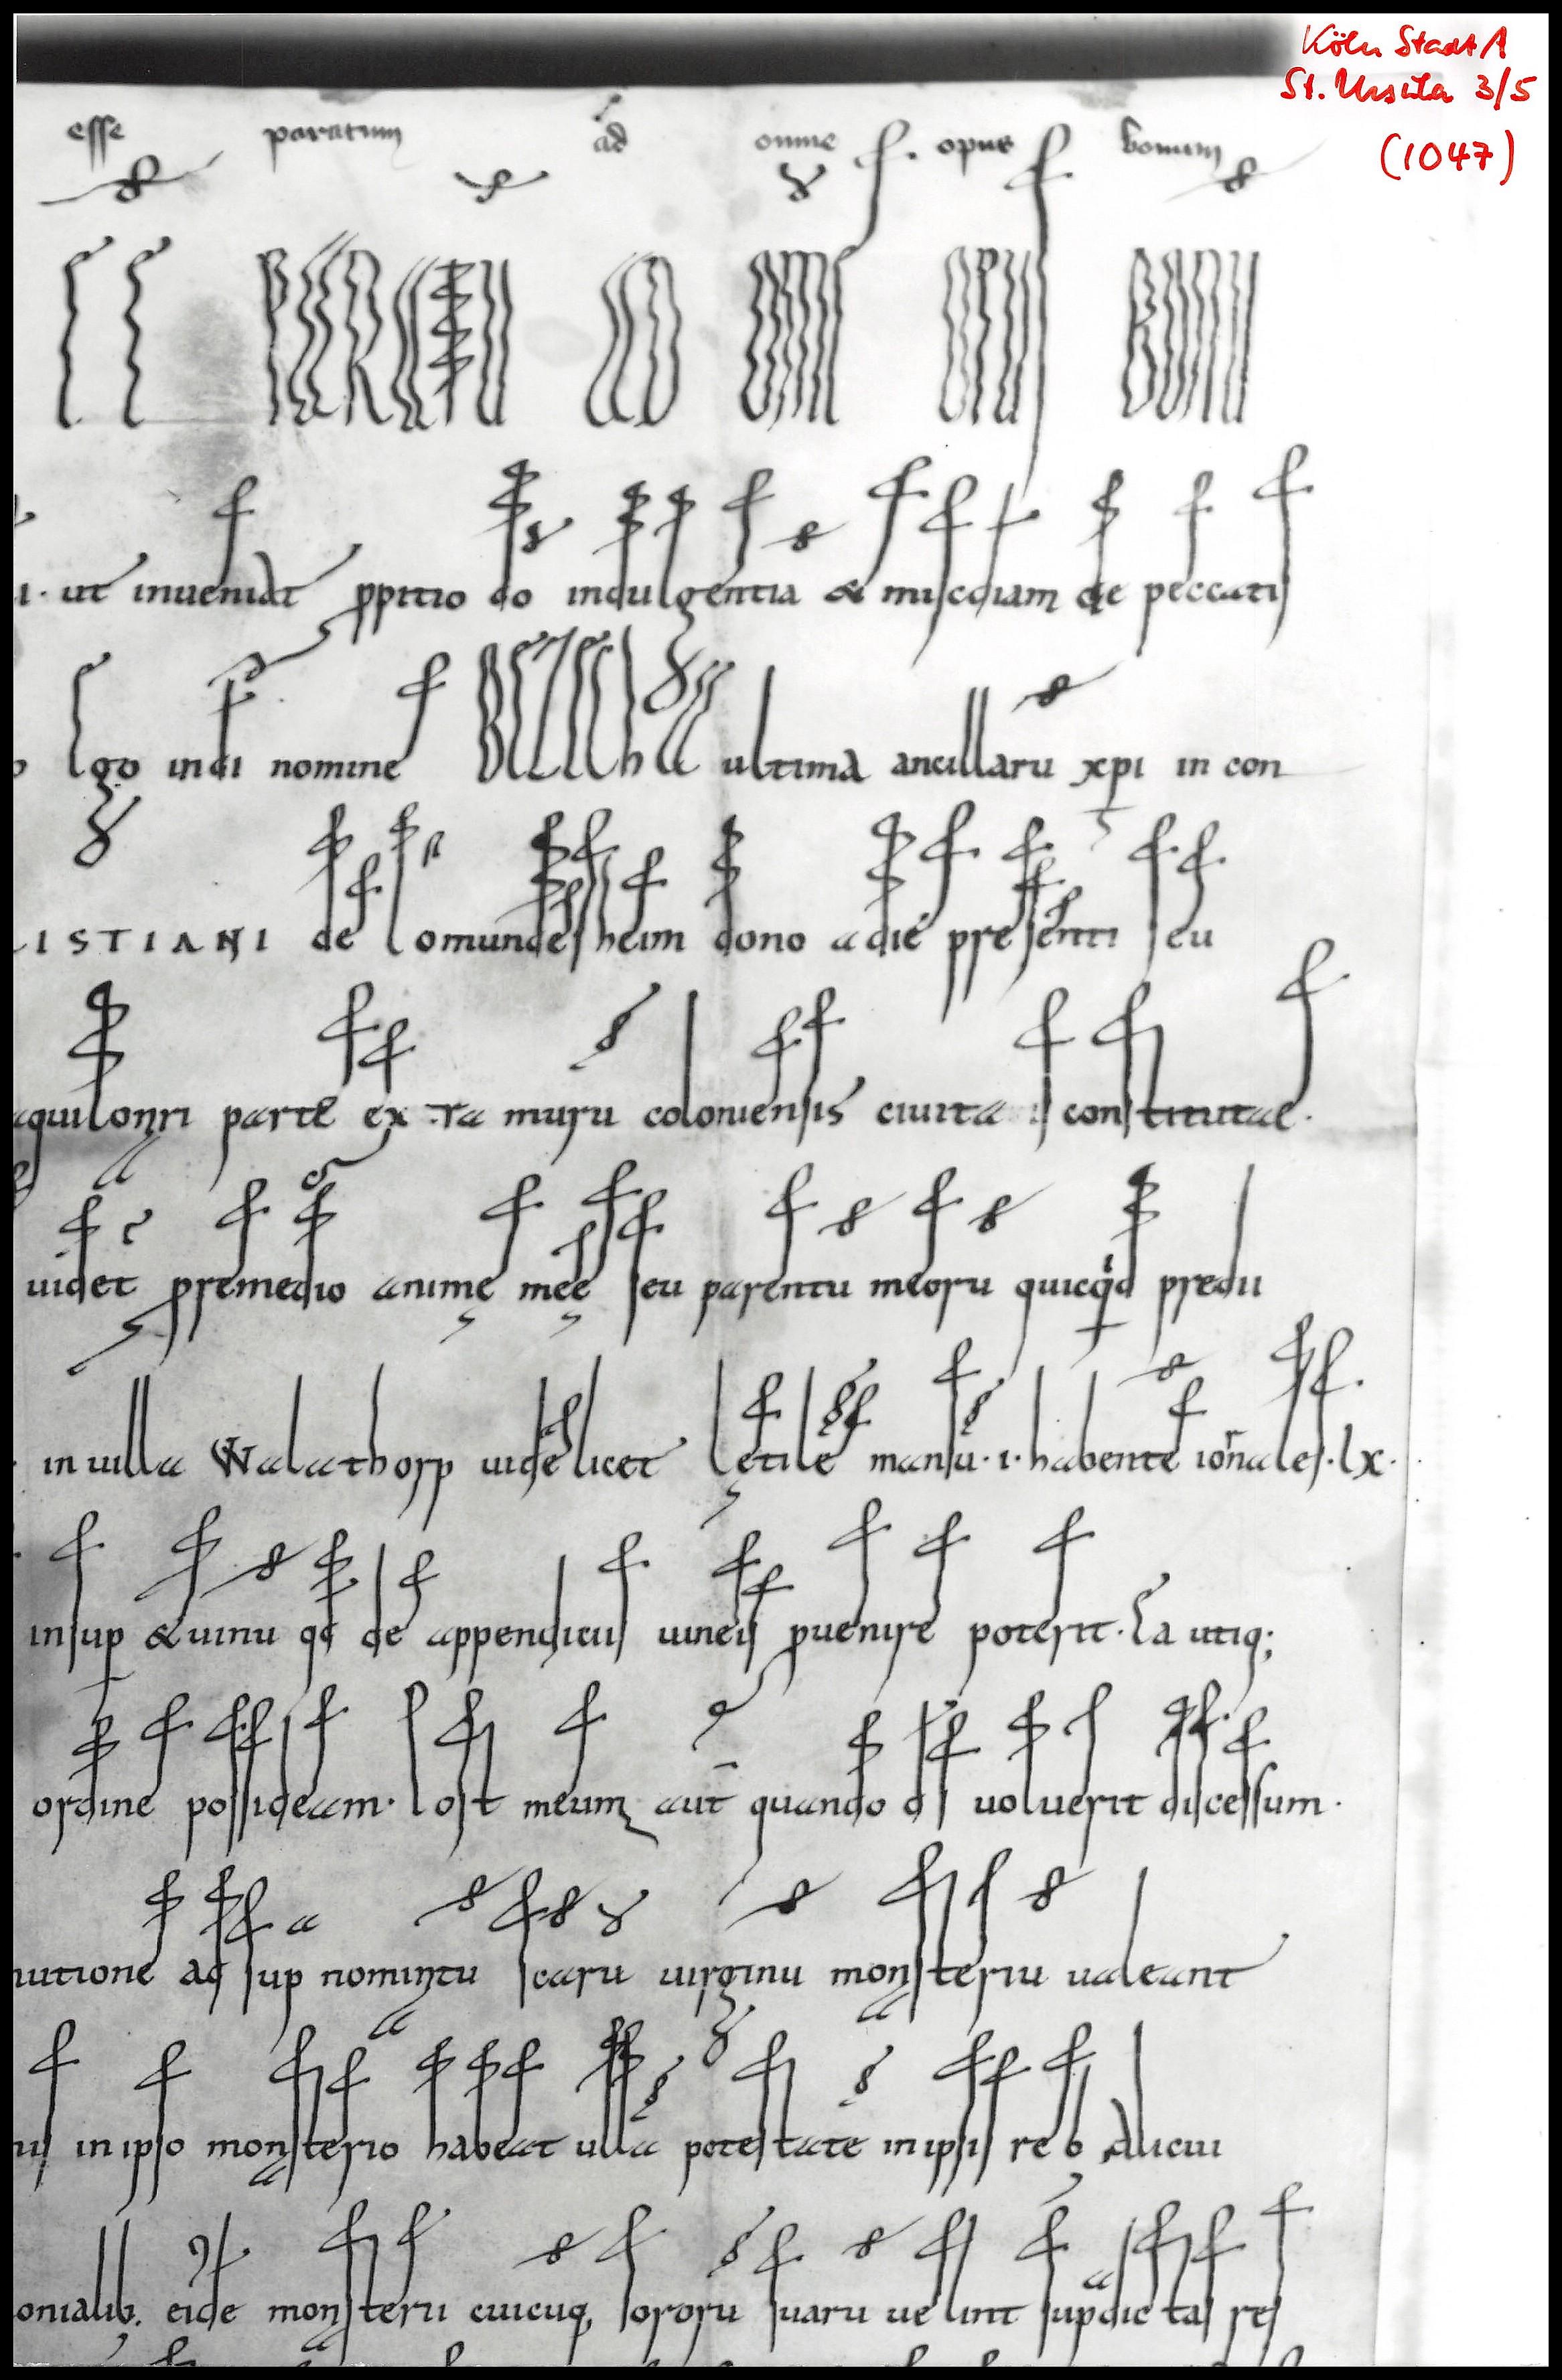 Köln StadtA
St. Ursula 3/5
(1047)
esse paratum ad omne opus bonum
EE PARATU AD OMNE OPUS BONU
ut inueniat ppitio do indulgentia & miscdiam de peccatis
ego indi nomine BEZECHA ultima ancillaru xpi in con
ISTIANI de Lomundesheim dono a die presenti seu
aquilonri parte extra muru coloniensis ciuitatis constitutae.
uidet premedio animę meę seu parentu meoru quicqd predii
in uilla Walathorp uidelicet Lętile mansu .i. habente iornales .lx.
insup & uinu qd de appendiciis uineis puenire poterit. Ea utiq;
ordine possideam. Post meum aut quando ds uoluerit discessum.
nutione ad sup nomintu scaru uirginu monsteriu ualeant
in ipso monsterio habeat ulla potestate in ipsis reb alicui
onialib; eide monsterii cuicuq; sororu suaru uelint supdictas res